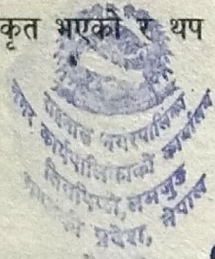 कृत भएको र थप
राईनास नगरपालिका
नगर कार्यपालिकाको कार्यालय
तिनपिप्ले, लमजुङ
प्रदेश, नेपाल